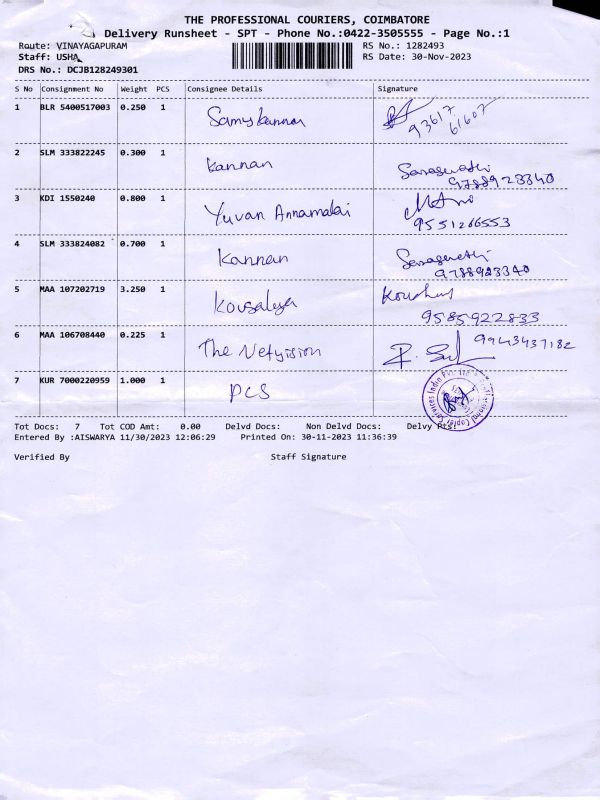 THE PROFESSIONAL COURIERS, COIMBATORE
Delivery Runsheet - SPT - Phone No.:0422-3505555 - Page No.:1
Route: VINAYAGAPURAM RS No.: 1282493
Staff: USHA RS Date: 30-Nov-2023
DRS No.: DCJB128249301
S No Consignment No Weight PCS Consignee Details Signature
1 BLR 5400517003 0.250 1 Samykannan 93617
61607
2 SLM 333822245 0.300 1 Kannan Saraswathi
9788923340
3 KDI 1550240 0.800 1 Yuvan Annamalai
9551266553
4 SLM 333824082 0.700 1 Kannan Saraswathi
9788923340
5 MAA 107202719 3.250 1 Kousalya
9585922833
6 MAA 106708440 0.225 1 The Netvision 9943437182
7 KUR 7000220959 1.000 1 PCS
Tot Docs: 7 Tot COD Amt: 0.00 Delvd Docs: Non Delvd Docs: Delvy
Entered By :AISWARYA 11/30/2023 12:06:29 Printed On: 30-11-2023 11:36:39
Verified By Staff Signature